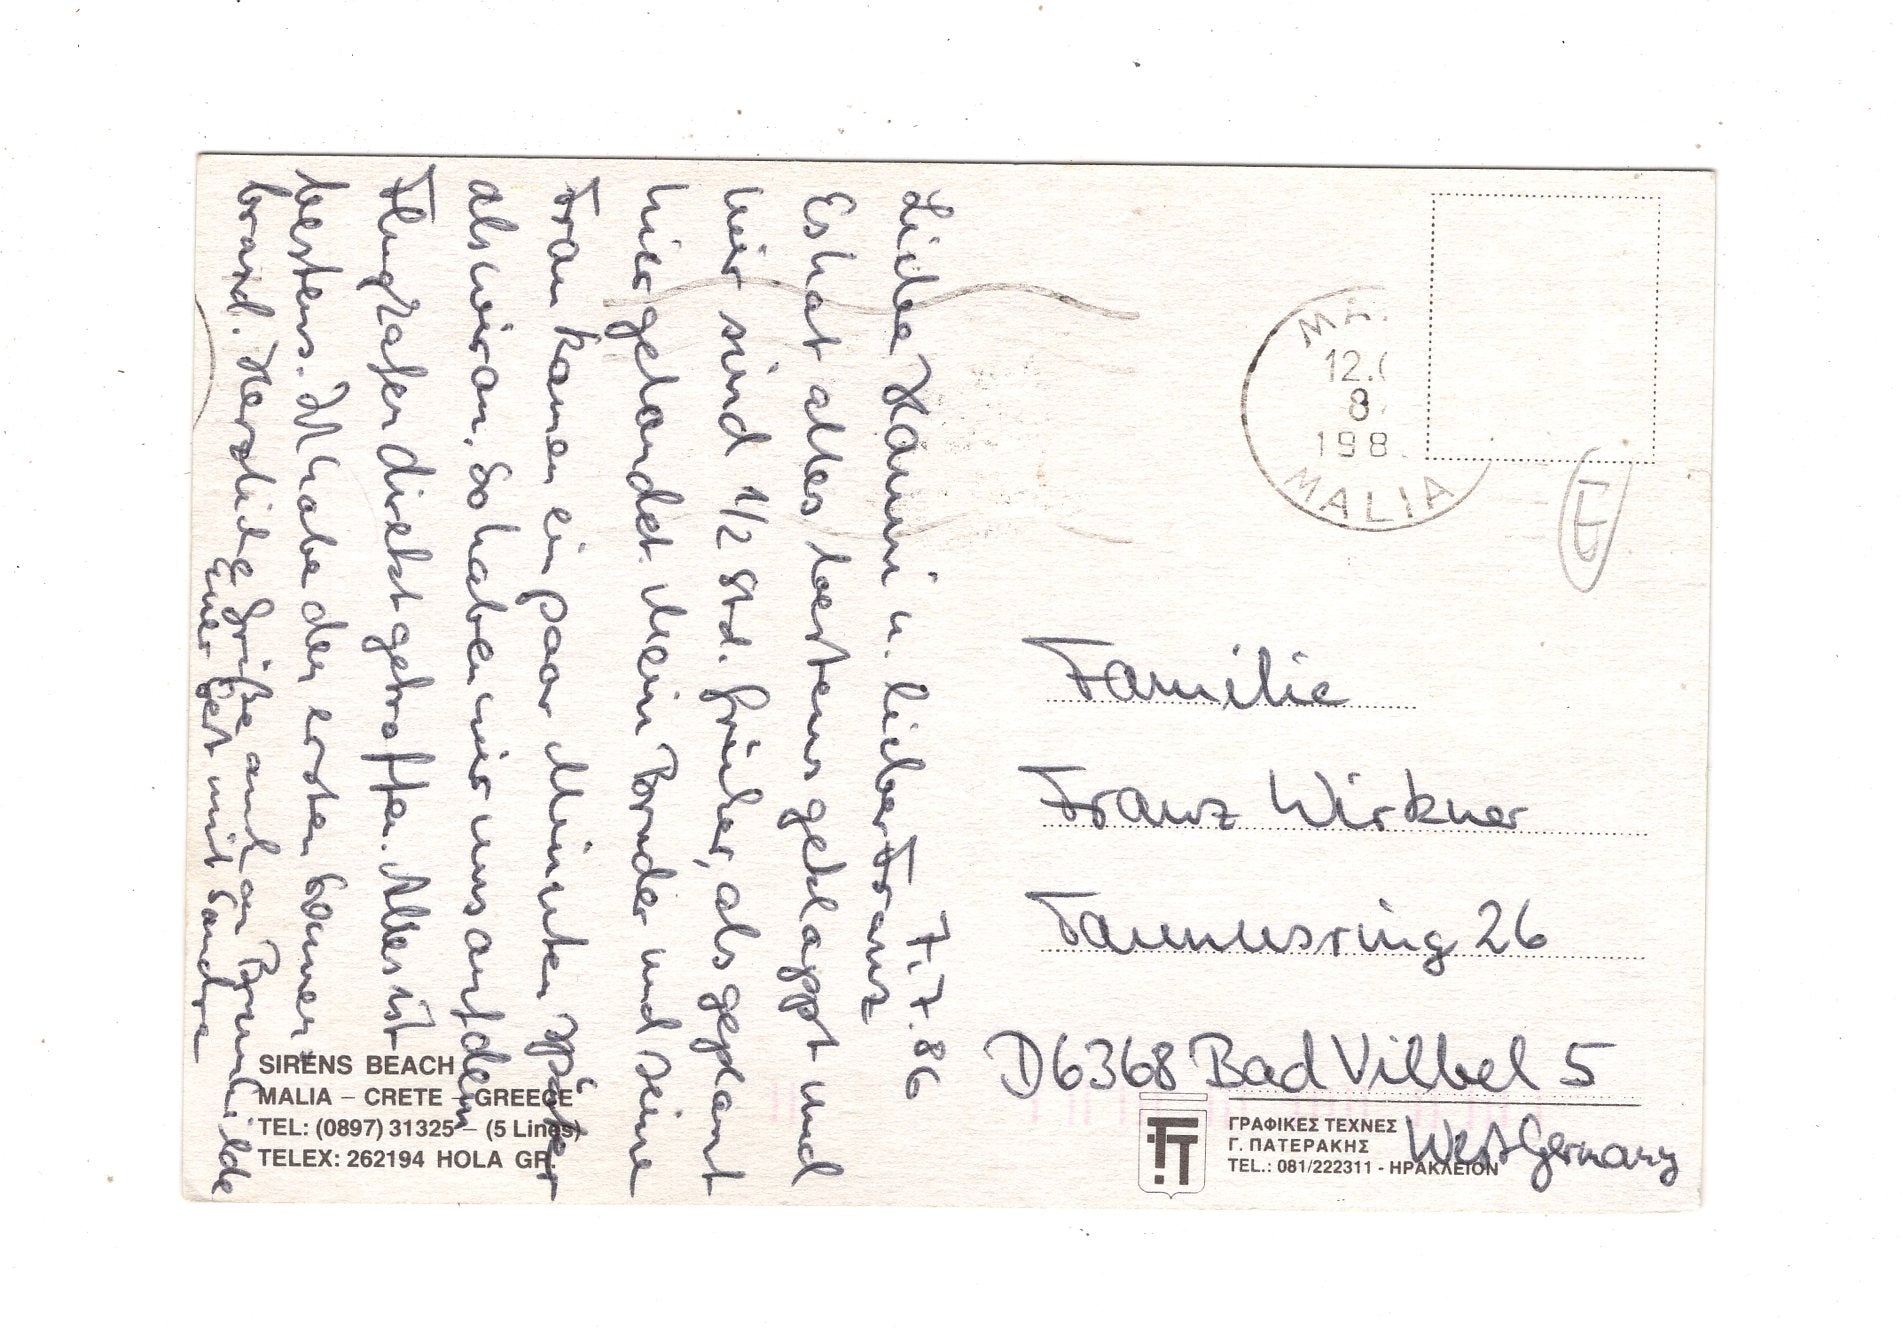 7.7.86
Liebe Hanni u. lieber Franz
Es hat alles bestens geklappt und
wir sind 1/2 Std. früher, als geplant
hier gelandet. Mein Bruder und seine
Frau kamen ein paar Minuten später
als wir an. So haben wir uns auf dem
Flughafen direkt getroffen. Alles ist
bestens. Ich habe den ersten Sonnen-
brand. Herzliche Grüße auch an Brunhilde
Euer mit Sandra
SIRENS BEACH
MALIA – CRETE – GREECE
TEL: (0897) 31325 – (5 Lines)
TELEX: 262194 HOLA GR.
MA
12.
8
198
MALIA
Familie
Franz Wirkner
Taunusring 26
D6368 Bad Vilbel 5
West Germany
ΓΡΑΦΙΚΕΣ ΤΕΧΝΕΣ
Γ. ΠΑΤΕΡΑΚΗΣ
ΤΕL.: 081/222311 - ΗΡΑΚΛΕΙΟΝ